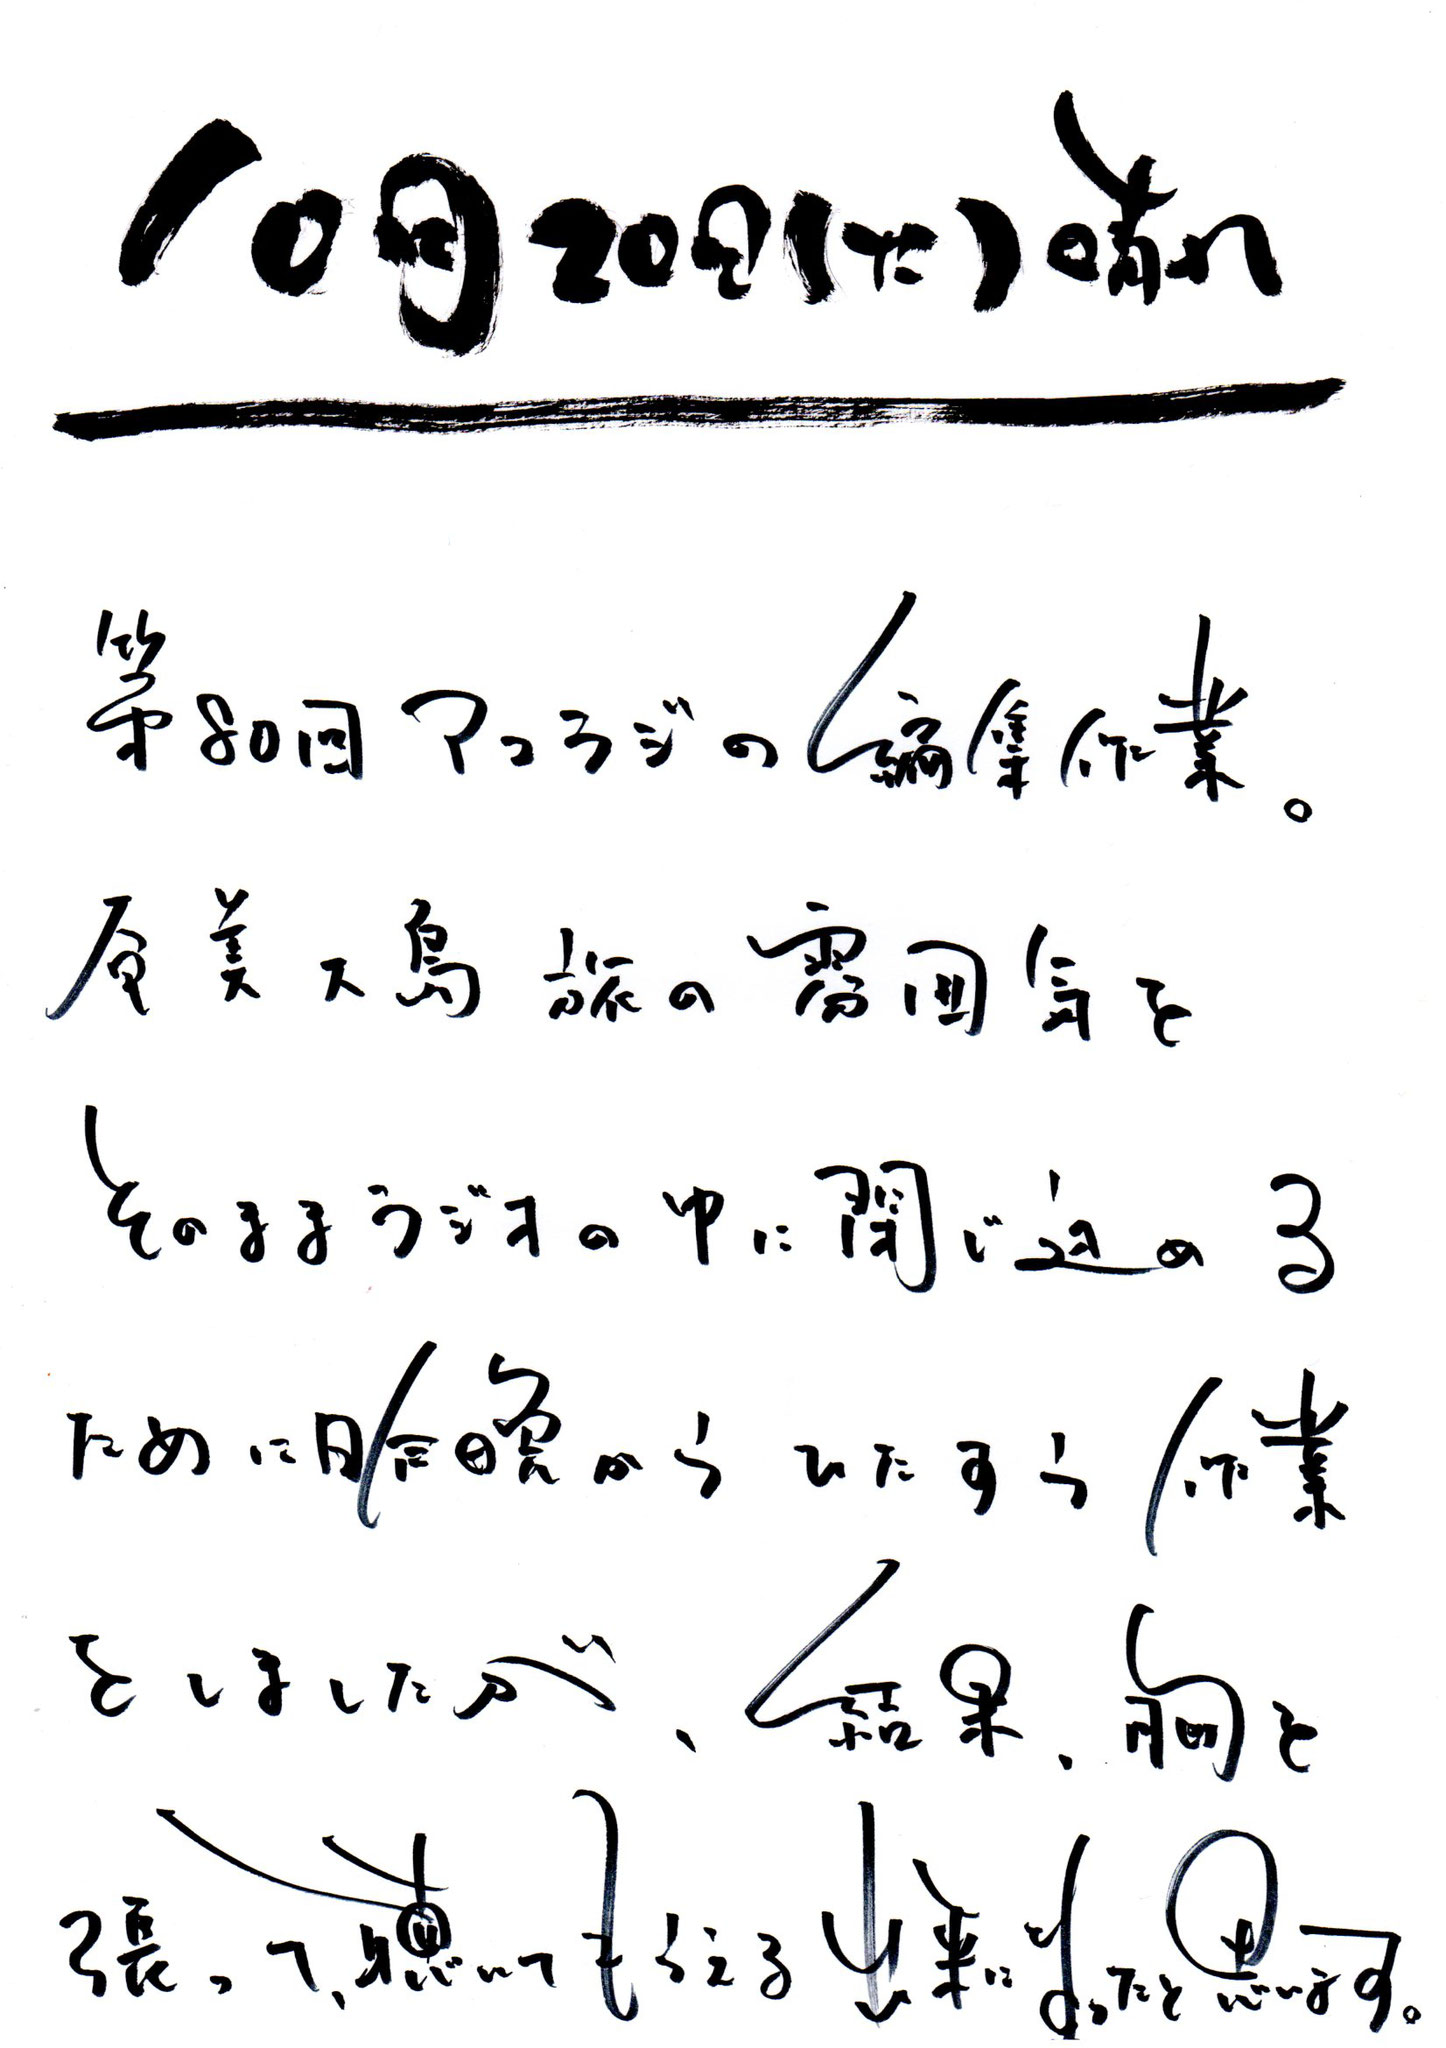 10月20日(た)晴れ
第80回アコラジの編集作業。
奄美大島旅の雰囲気を
そのままラジオの中に閉じ込める
ために昨晩からひたすら作業
をしましたが、結果、胸を
張って、聴いてもらえる出来になったと思います。